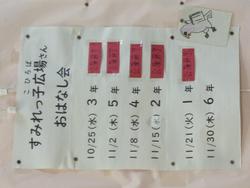 こひろば
すみれっ子広場さん
おはなし会
10/25(水) 3年
11/2(木) 5年
11/8(水) 4年
11/15(水) 2年
11/21(火) 1年
11/30(木) 6年